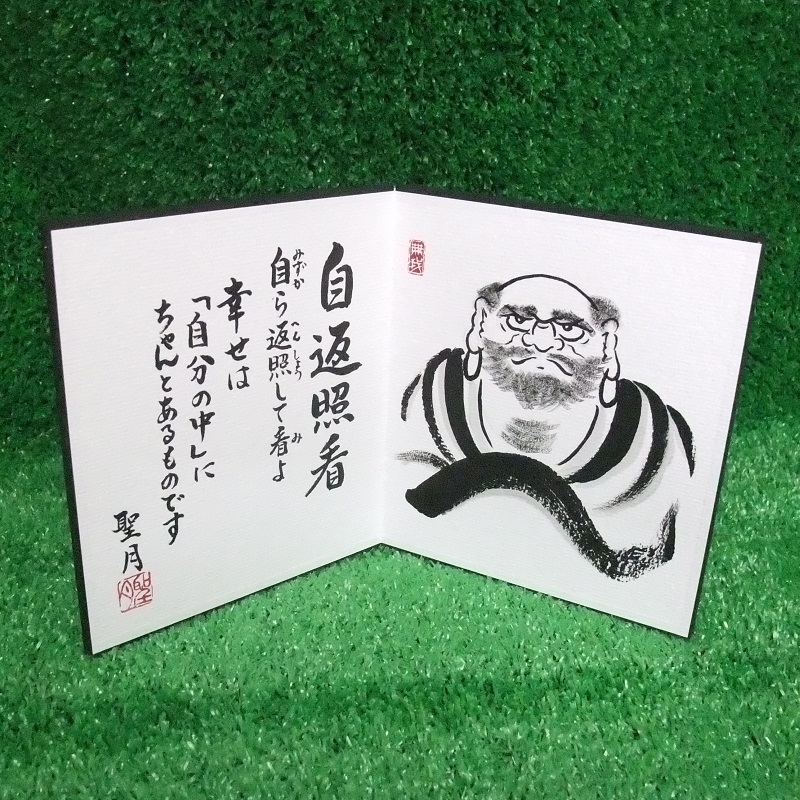 無我
自返照看
自ら返照して看よ
みずか
へんしょう
み
幸せは
「自分の中」に
ちゃんとあるものです
聖月
聖月